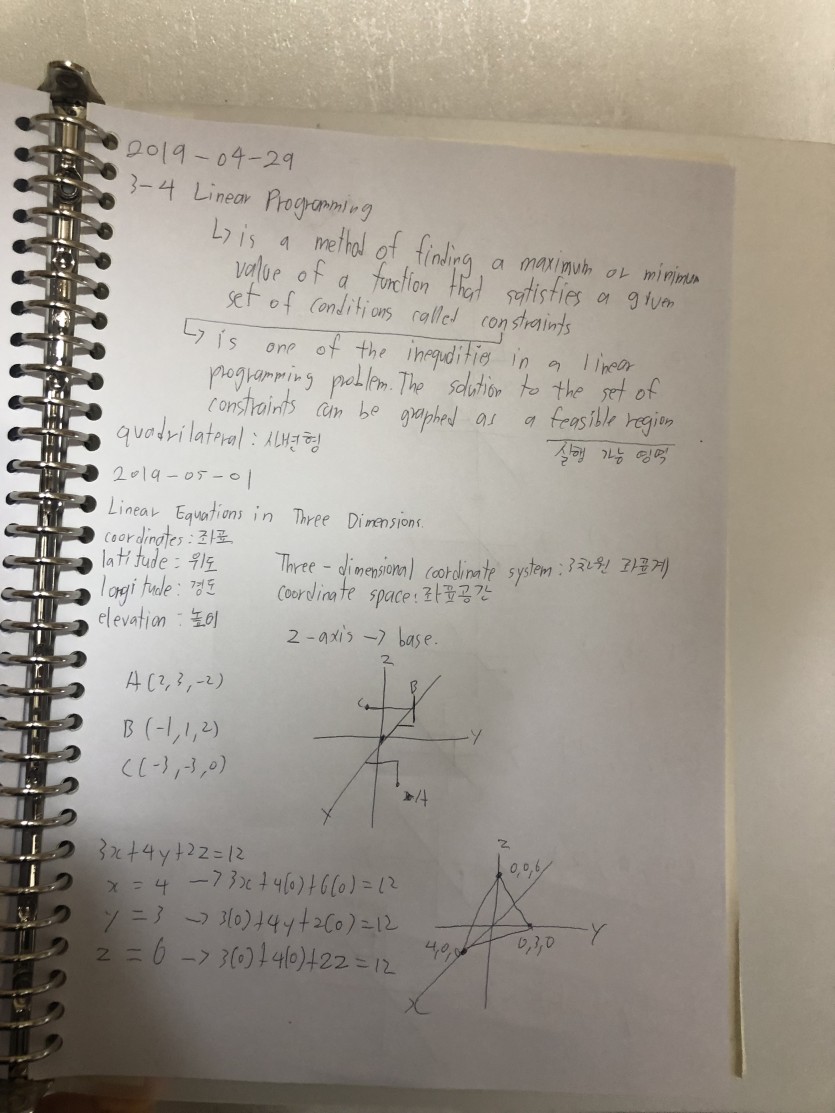 2019-04-29
3-4 Linear Programming
↳ is a method of finding a maximum or minimum
value of a function that satisfies a given
set of conditions called constraints
↳ is one of the inequdities in a linear
programming problem. The solution to the set of
constraints can be graphed as a feasible region
quadrilateral : 사변형
실행 가능 영역
2019-05-01
Linear Equations in Three Dimensions.
coordinates : 좌표
latitude : 위도
Three-dimensional coordinate system : 3차원 좌표계
longitude : 경도
coordinate space : 좌표공간
elevation : 높이
z-axis → base.
Z
A(2,3,-2)
B
C
B(-1,1,2)
Y
C(-3,-3,0)
A
X
3x+4y+2z=12
Z
x = 4 → 3x+4(0)+6(0)=12
0,0,6
y = 3 → 3(0)+4y+2(0)=12
Y
z = 6 → 3(0)+4(0)+2z=12
4,0,0
0,3,0
X